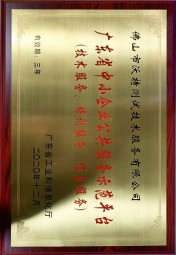 佛山市沃特测试技术服务有限公司
广东省中小企业公共服务示范平台
(技术服务、培训服务、信息服务)
有效期：三年
广东省工业和信息化厅
二〇二〇年十二月